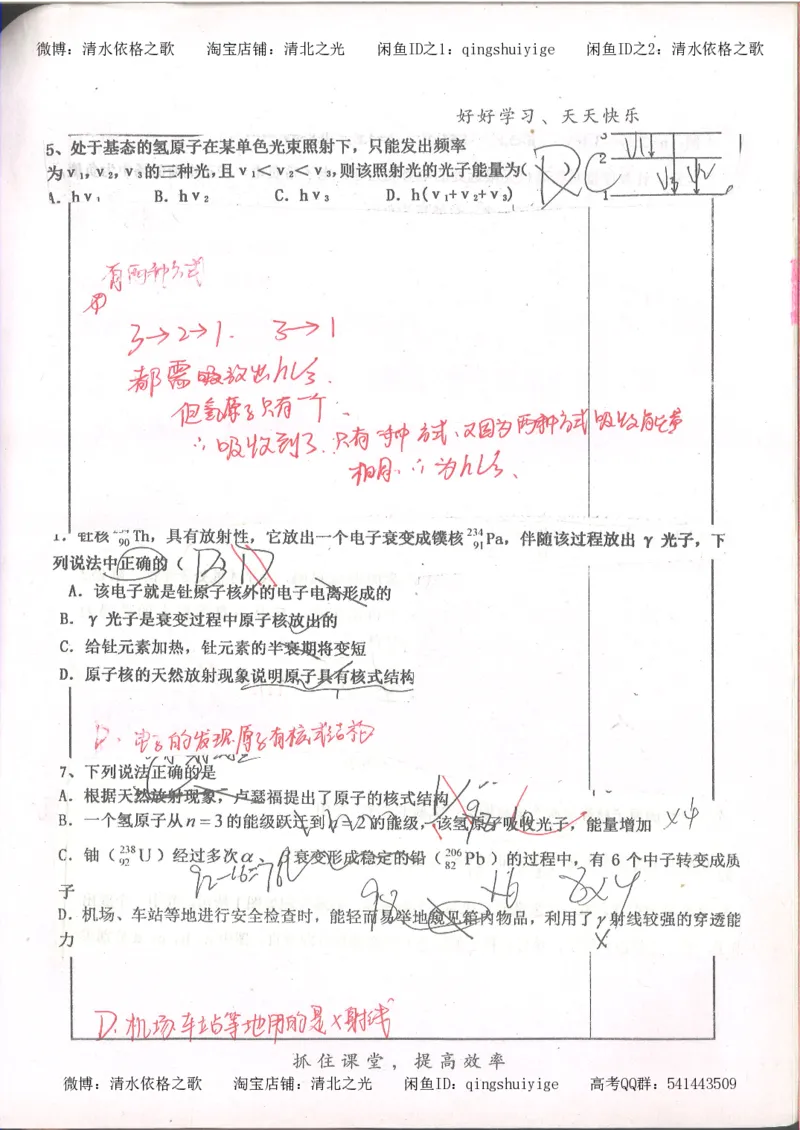 微博：清水依格之歌 淘宝店铺：清北之光 闲鱼ID之1：qingshuiyige 闲鱼ID之2：清水依格之歌
好好学习、天天快乐
5、处于基态的氢原子在某单色光束照射下，只能发出频率
为ν₁，ν₂，ν₃的三种光，且ν₁＜ν₂＜ν₃，则该照射光的光子能量为( ) D C
A．hν₁ B．hν₂ C．hν₃ D．h(ν₁+ν₂+ν₃)
3
2
1
ν1 ν3 ν2
有两种方式
3→2→1. 3→1
都需吸放出hν3.
但氢原子只有一个.
∴吸收到了.只有一种方式、又因为两种方式吸收能量
相同.∴为hν3.
钍核 ₉₀Th，具有放射性，它放出一个电子衰变成镤核 ²³⁴₉₁Pa，伴随该过程放出 γ 光子，下
列说法中正确的（ B D
A．该电子就是钍原子核外的电子电离形成的
B．γ 光子是衰变过程中原子核放出的
C．给钍元素加热，钍元素的半衰期将变短
D．原子核的天然放射现象说明原子具有核式结构
D. 的发现原子有核式结构
7、下列说法正确的是
A．根据天然放射现象，卢瑟福提出了原子的核式结构
B．一个氢原子从n＝3的能级跃迁到n＝2的能级，该氢原子吸收光子，能量增加
C．铀（²³⁸₉₂U）经过多次α、β衰变形成稳定的铅（²⁰⁶₈₂Pb）的过程中，有 6 个中子转变成质
子
92-16=76
8×4
D．机场、车站等地进行安全检查时，能轻而易举地窥见箱内物品，利用了γ射线较强的穿透能
力
X
D.机场.车站等地用的是X射线
抓住课堂，提高效率
微博：清水依格之歌 淘宝店铺：清北之光 闲鱼ID：qingshuiyige 高考QQ群：541443509